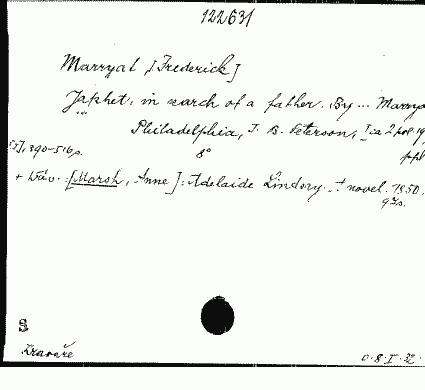 122631
Marryat, [Frederick]
Japhet, in search of a father. By ... Marrya
Philadelphia, T. B. Peterson,
8°
390-516 p.
+ [Marsh, Anne]: Adelaide Lindsey. A novel. 1850.
97 s.
S
Kravaře